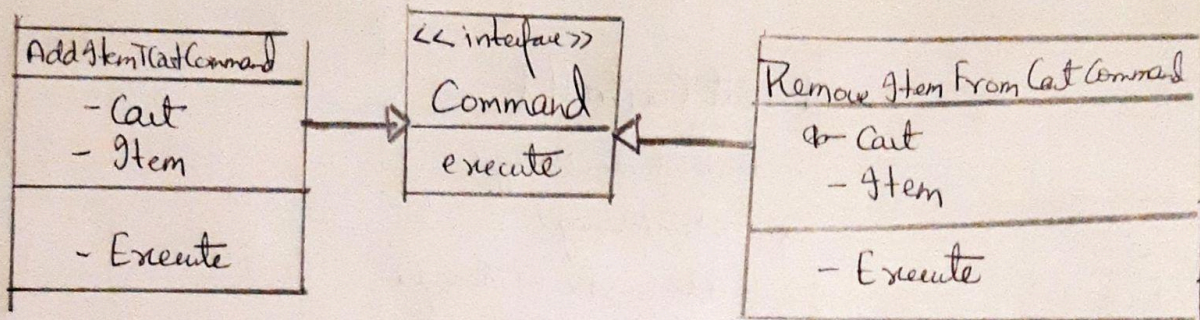 AddItemTCartCommand
- Cart
- Item
- Execute
<<interface>>
Command
execute
Remove Item From Cart Command
- Cart
- Item
- Execute